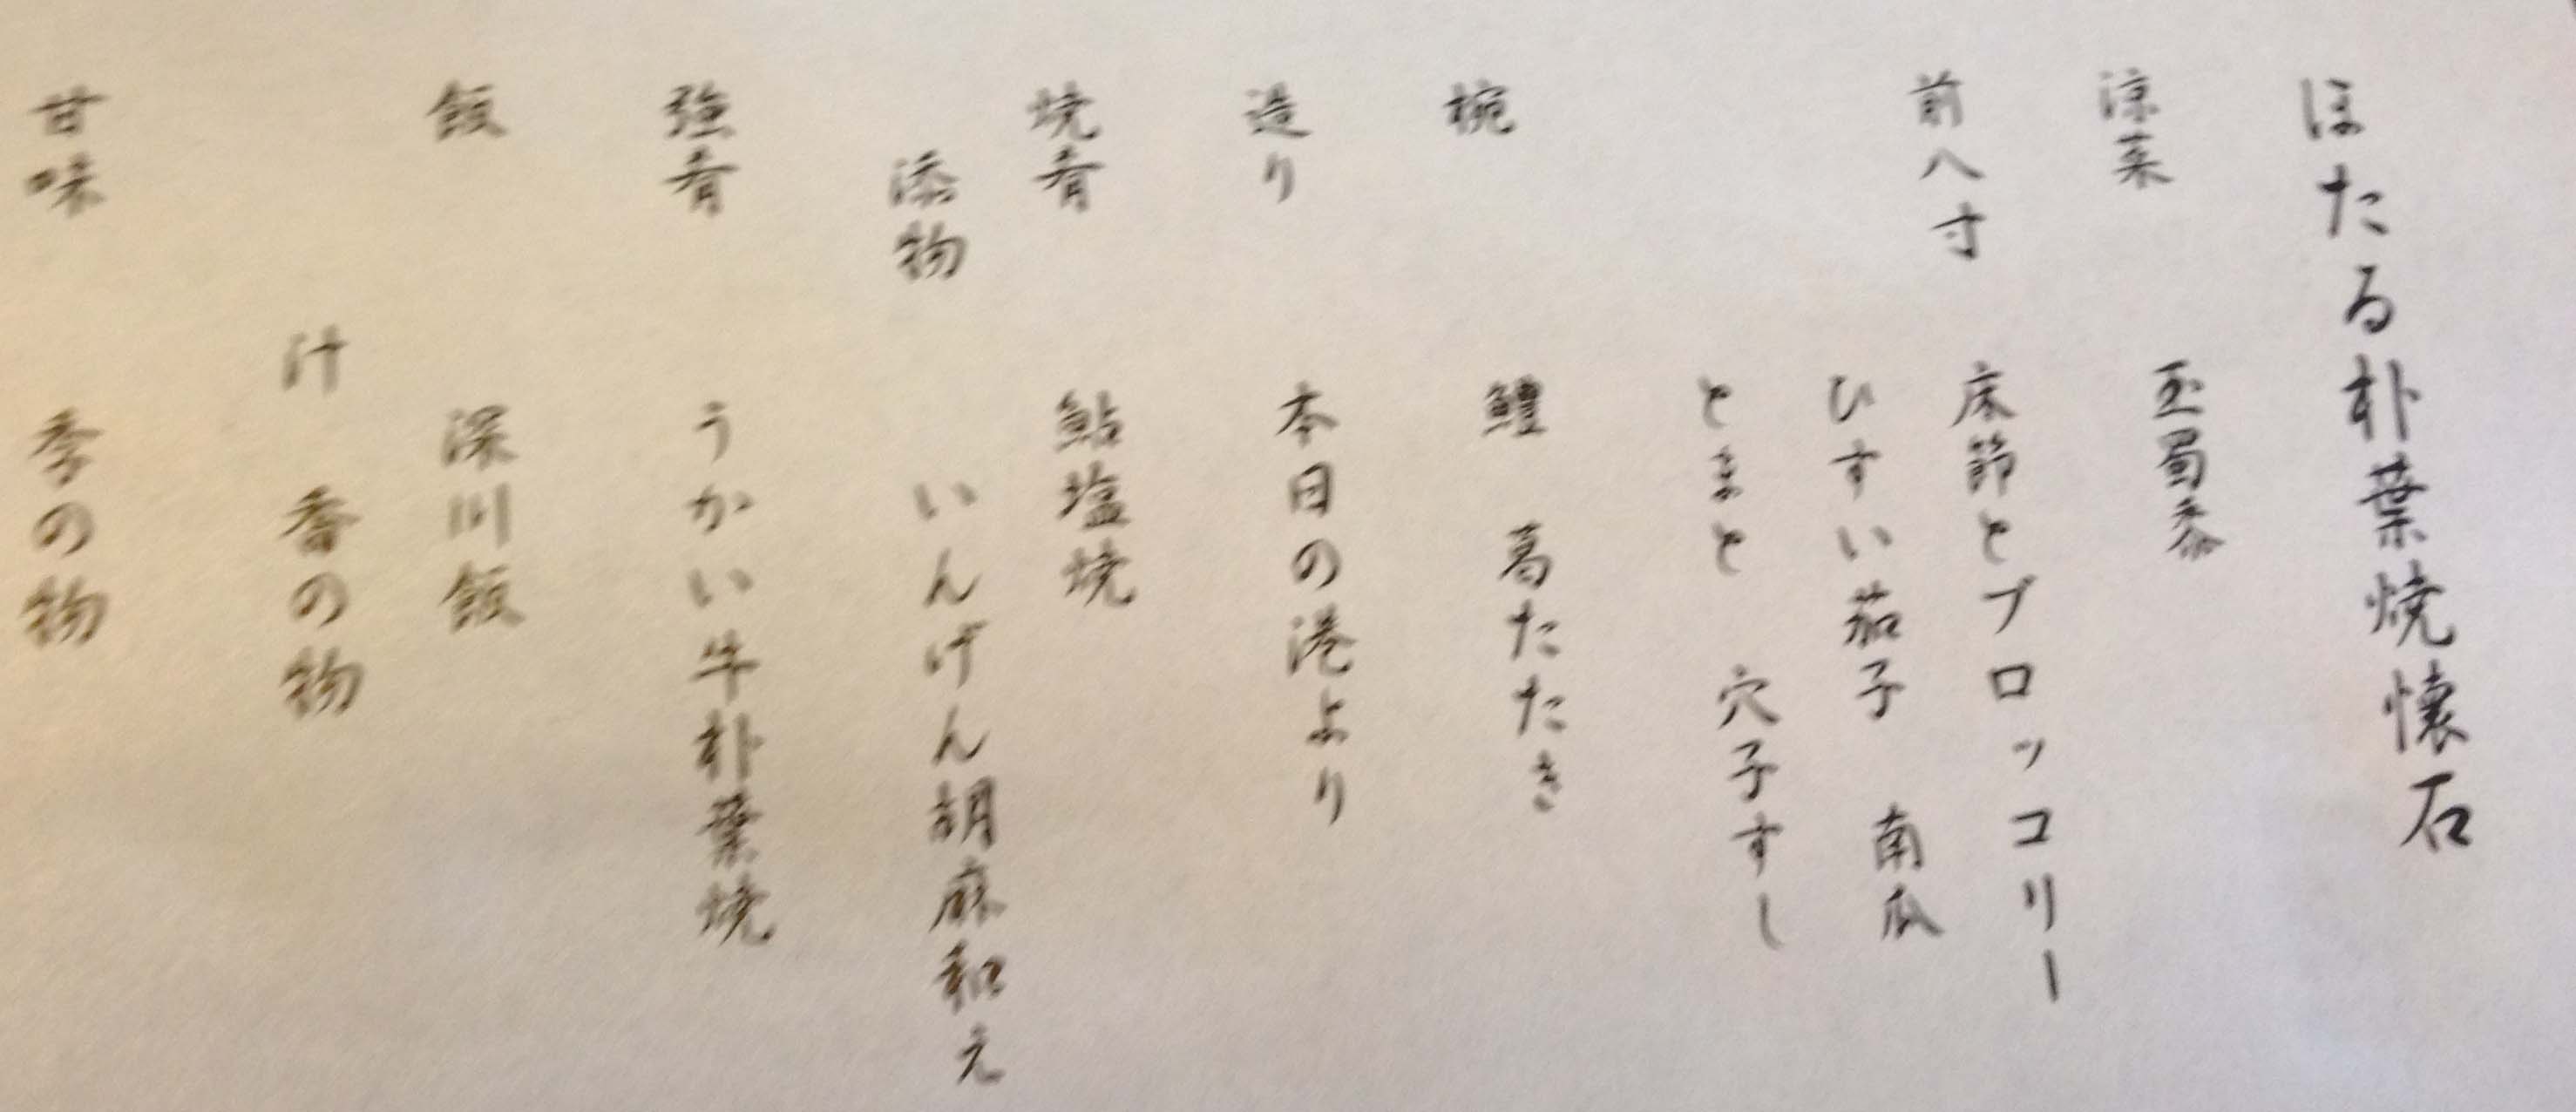 ほたる朴葉焼懐石
涼菜 玉蜀黍
前八寸 床節とブロッコリー
ひすい茄子 南瓜
とまと 穴子すし
椀 鱧 葛たたき
造り 本日の港より
焼肴 鮎塩焼
添物 いんげん胡麻和え
強肴 うかい牛朴葉焼
飯 深川飯
汁 香の物
甘味 季の物